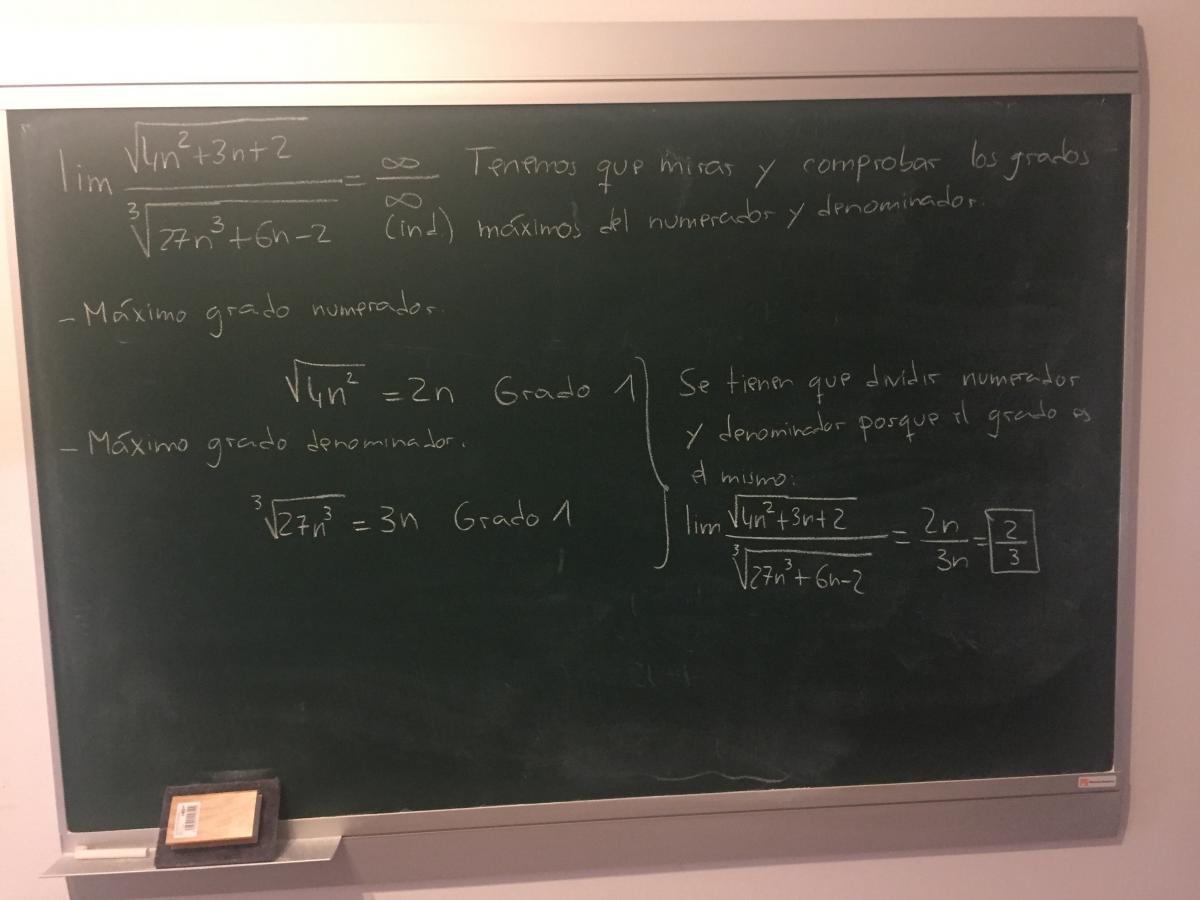 lim √(4n²+3n+2) / ∛(27n³+6n-2) = ∞/∞ (ind.) Tenemos que mirar y comprobar los grados
máximos del numerador y denominador.
- Máximo grado numerador.
√4n² = 2n Grado 1
- Máximo grado denominador.
∛27n³ = 3n Grado 1
Se tienen que dividir numerador
y denominador porque el grado es
el mismo:
lim √(4n²+3n+2) / ∛(27n³+6n-2) = 2n/3n = 2/3